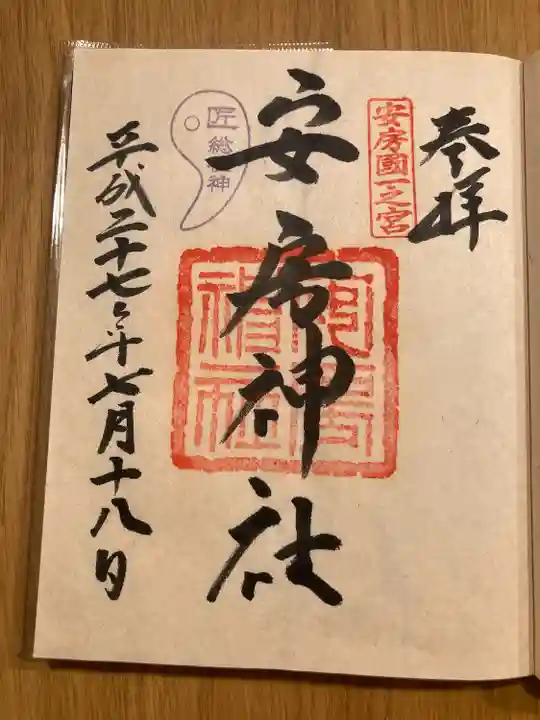 奉拝
安房國一之宮
安房神社
匠総神
平成二十七年七月十八日